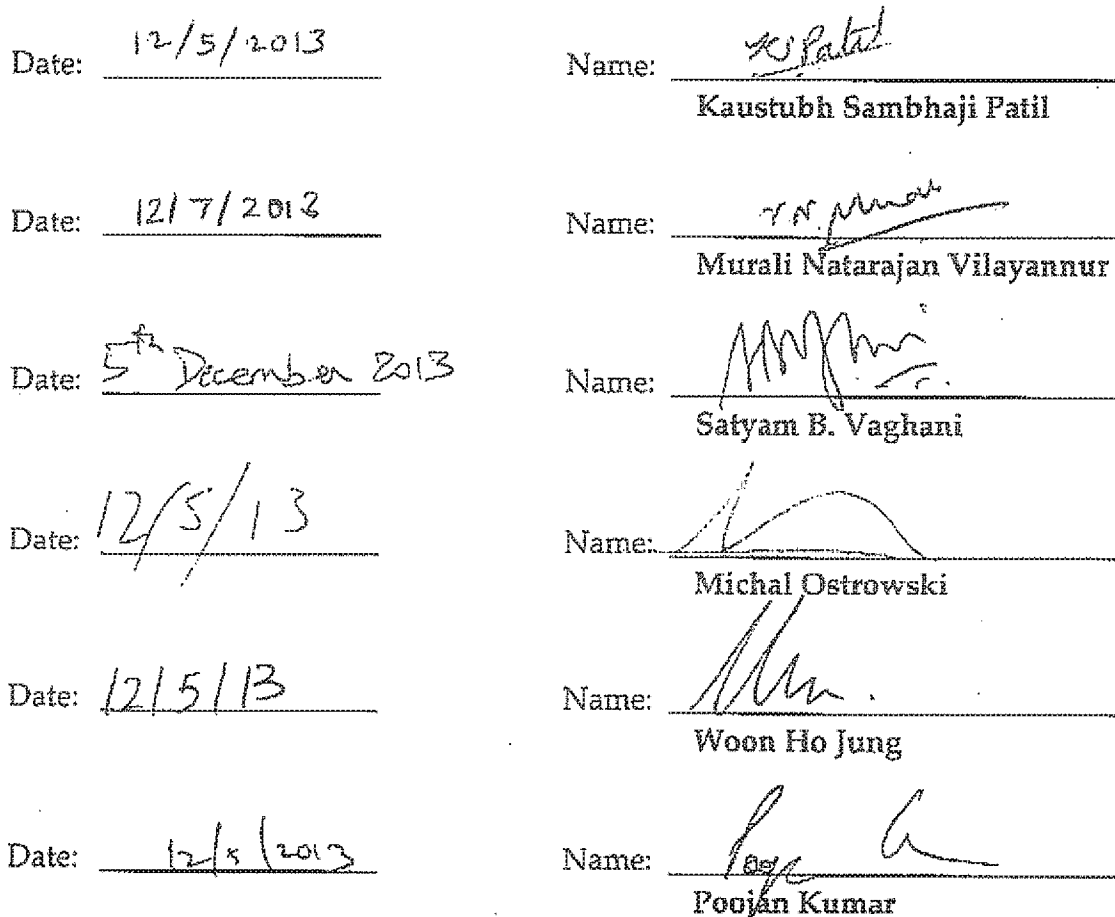 Date: 12/5/2013 Name: KS Patil
Kaustubh Sambhaji Patil
Date: 12/7/2013 Name: V.N.
Murali Natarajan Vilayannur
Date: 5th December 2013 Name:
Satyam B. Vaghani
Date: 12/5/13 Name:
Michal Ostrowski
Date: 12/5/13 Name:
Woon Ho Jung
Date: 12/5/2013 Name:
Poojan Kumar